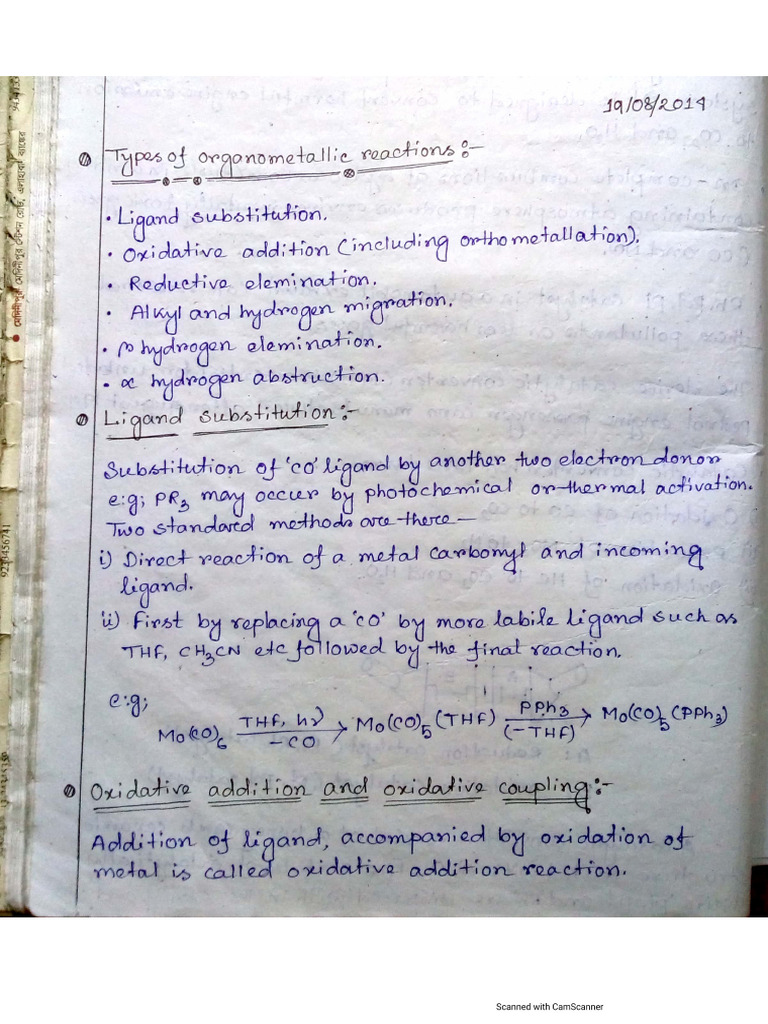 19/08/2019
Types of organometallic reactions:-
• Ligand substitution.
• Oxidative addition (including orthometallation).
• Reductive elemination.
• Alkyl and hydrogen migration.
• β hydrogen elemination.
• α hydrogen abstruction.
Ligand substitution:-
Substitution of 'CO' ligand by another two electron donor
e:g; PR₃ may occur by photochemical or thermal activation.
Two standard methods are there—
i) Direct reaction of a metal carbonyl and incoming
ligand.
ii) First by replacing a 'CO' by more labile ligand such as
THF, CH₃CN etc followed by the final reaction.
e:g;
Mo(CO)₆ THF, hν / −CO → Mo(CO)₅ (THF) PPh₃ / (−THF) → Mo(CO)₅ (PPh₃)
Oxidative addition and oxidative coupling:-
Addition of ligand, accompanied by oxidation of
metal is called oxidative addition reaction.
Scanned with CamScanner